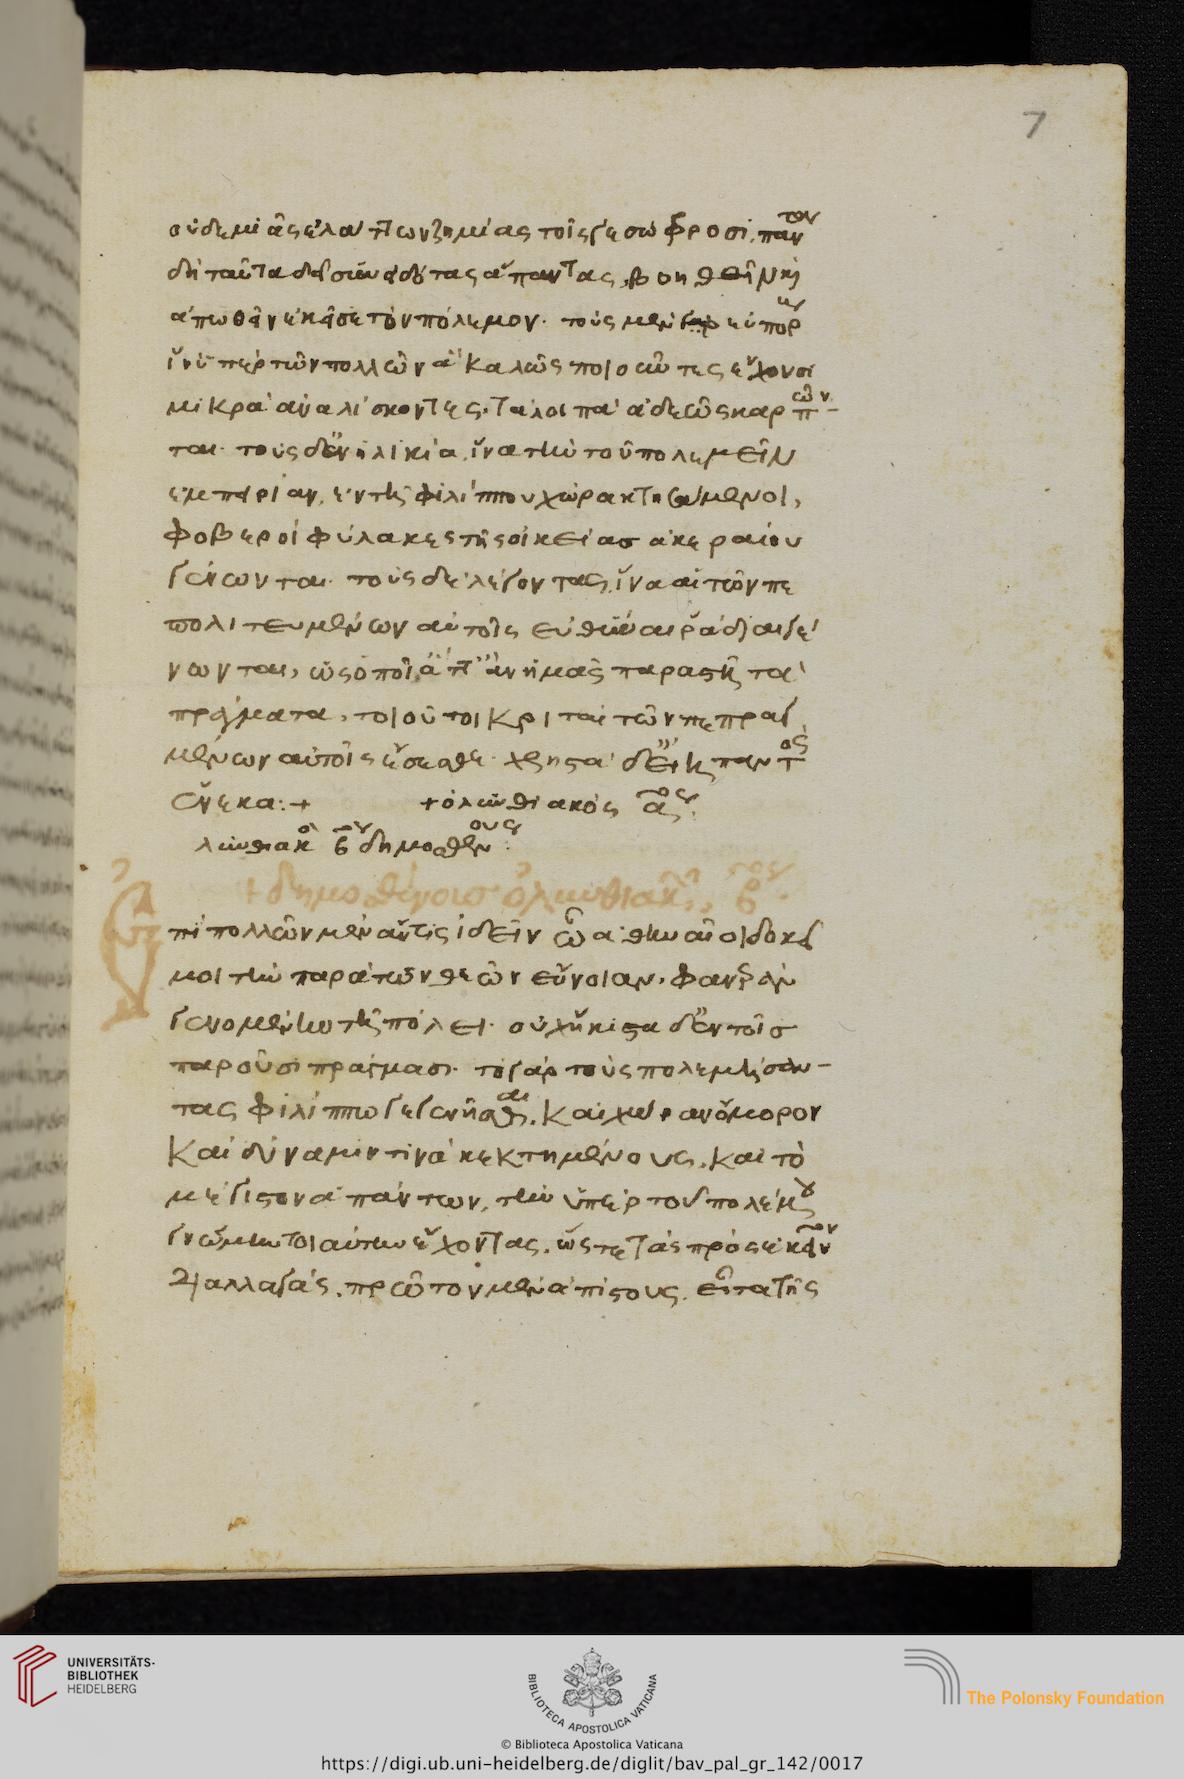 7
οὐδεμιᾶς ἐλάττων ζημίας τοῖς γε σώφροσι. πάντων
δὴ ταῦτα δεῖ συνιδόντας ἅπαντας, βοηθεῖν κὶ
ἀπωθεῖν ἐκεῖσε τὸν πόλεμον. τοὺς μὲν εὐπόρους
ἵν' ὑπὲρ τῶν πολλῶν ἃ καλῶς ποιοῦντες ἔχουσι
μικρὰ ἀναλίσκοντες. τἄλοιπὰ ἀδεῶς καρπῶν-
ται. τοὺς δ' ἐν ἡλικία, ἵνα τὴν τοῦ πολεμεῖν
ἐμπειρίαν, ἐν τῆ φιλίππου χώρα κτησάμενοι,
φοβεροὶ φύλακες τῆς οἰκείας ἀκεραίου
γένωνται. τοὺς δὲ λέγοντας, ἵνα αἱ τῶν πε
πολιτευμένων αὐτοῖς εὔθυναι ῥάδιαι γέ
νωνται, ὡς ὁποῖ' ἄττ' ἂν ἡμᾶς παραστῆ τὰ
πράγματα, τοιοῦτοι κριταὶ τῶν πεπραγ
μένων αὐτοῖς ἔσεσθε. χρηστὰ δ' εἴη παντὸς
εἵνεκα:+ +ὀλυνθιακὸς αος
λυνθιακὸς β δημοσθένους:
+δημοσθένους ὀλυνθιακὸς β
Ἐπὶ πολλῶν μὲν ἄν τις ἰδεῖν ὦ ἀθηναῖοι δοκεῖ
μοι τὴν παρὰ τῶν θεῶν εὔνοιαν, φανερὰν
γενομένην τῆ πόλει. οὐχ ἥκιστα δ' ἐν τοῖς
παροῦσι πράγμασι. τὸ γὰρ τοὺς πολεμήσον-
τας φιλίππω γεγενῆσθαι. καὶ χώραν ὅμορον
καὶ δύναμιν τινὰ κεκτημένους. καὶ τὸ
μέγιστον ἁπάντων, τὴν ὑπὲρ τοῦ πολέμου
γνώμην τοιαύτην ἔχοντας. ὥστε τὰς πρὸς ἐκεῖνον
διαλλαγάς. πρῶτον μὲν ἀπίστους. εἶτα τῆς
UNIVERSITÄTS-
BIBLIOTHEK
HEIDELBERG
BIBLIOTECA APOSTOLICA VATICANA
The Polonsky Foundation
© Biblioteca Apostolica Vaticana
https://digi.ub.uni-heidelberg.de/diglit/bav_pal_gr_142/0017